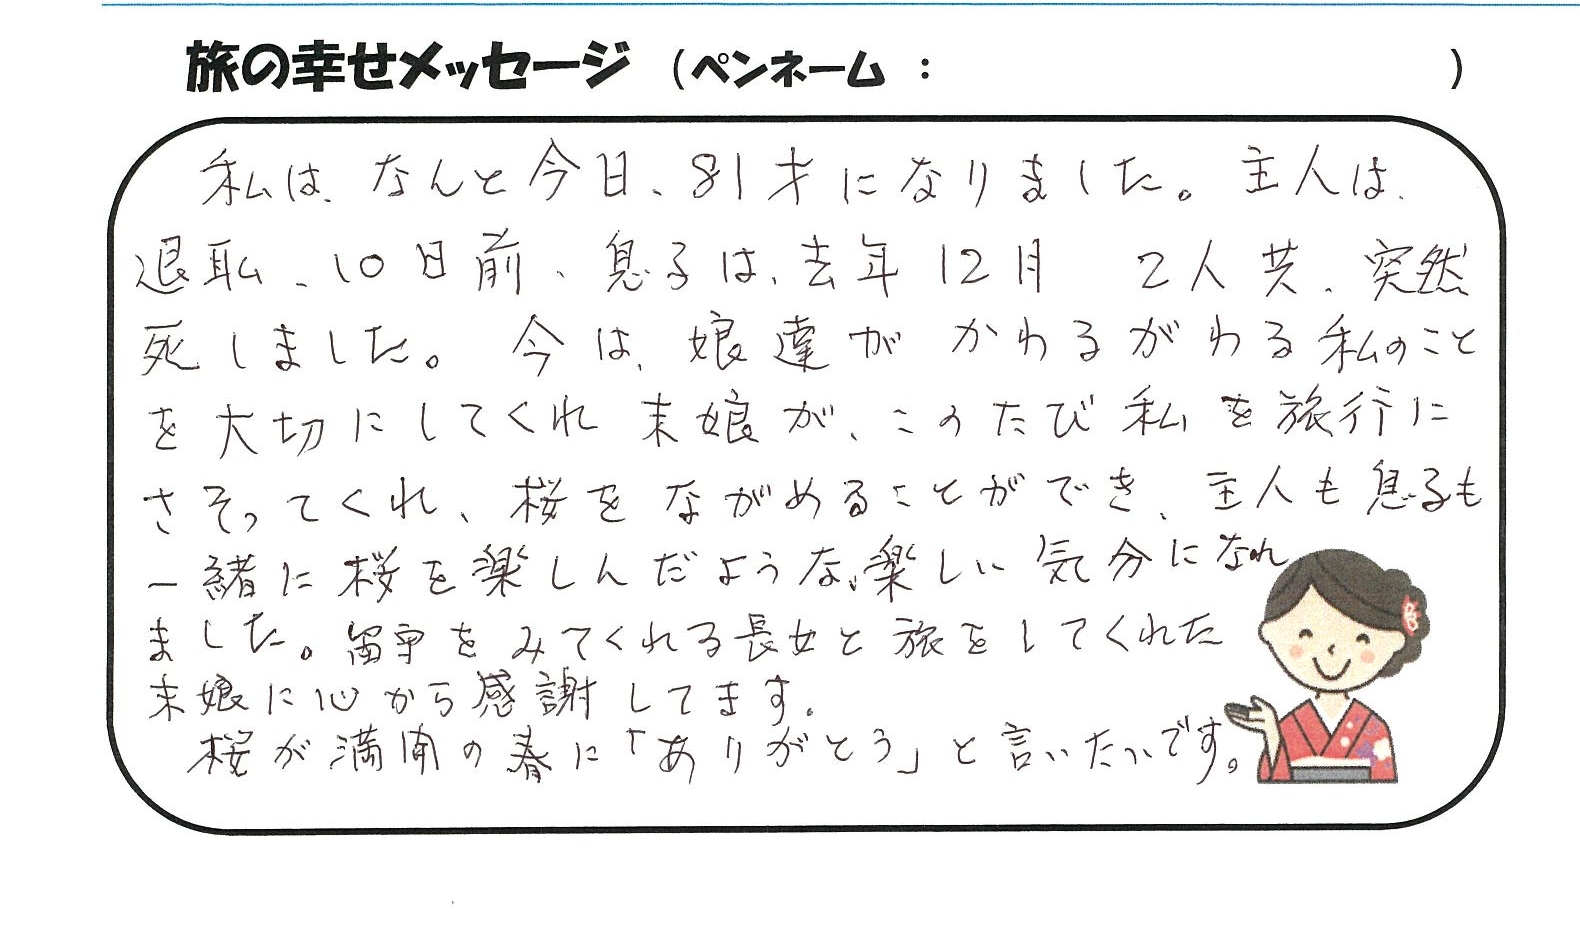 旅の幸せメッセージ（ペンネーム：　　　　）
私は、なんと今日、81才になりました。主人は、
退職、10日前、息子は、去年12月　2人共、突然
死しました。今は、娘達がかわるがわる私のこと
を大切にしてくれ末娘が、このたび私を旅行に
さそってくれ、桜をながめることができ、主人も息子も
一緒に桜を楽しんだような、楽しい気分になれ
ました。留守をみてくれる長女と旅をしてくれた
末娘に心から感謝してます。
桜が満開の春に「ありがとう」と言いたいです。